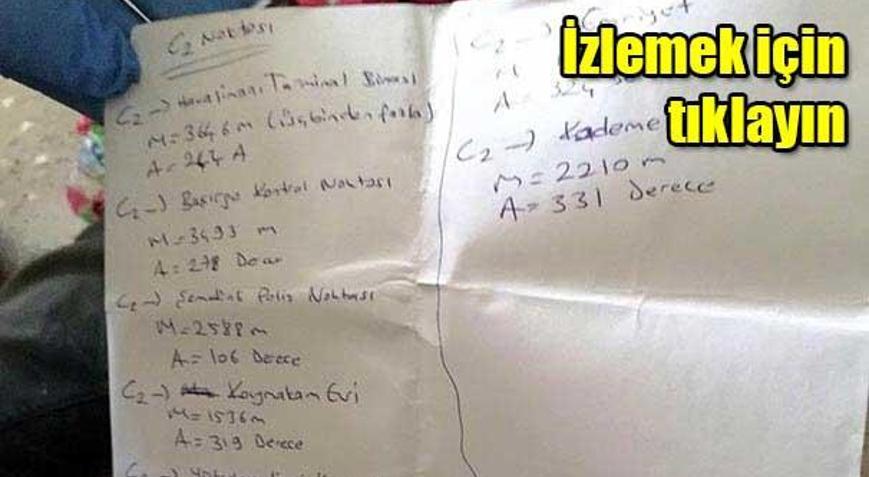 C2 Noktası
C2 → Havalimanı Terminal Binası
M = 3646 m (üçbinden fazla)
A = 264 A
C2 → Kontrol Noktası
M = 3493 m
A = 278
C2 → Şemdinli Polis Noktası
M = 2588 m
A = 106 Derece
C2 → Kaymakam Evi
M = 1536 m
A = 319 Derece
C2 →
C2 →
M
A = 324
C2 → Kademe
M = 2210 m
A = 331 Derece
İzlemek için
tıklayın